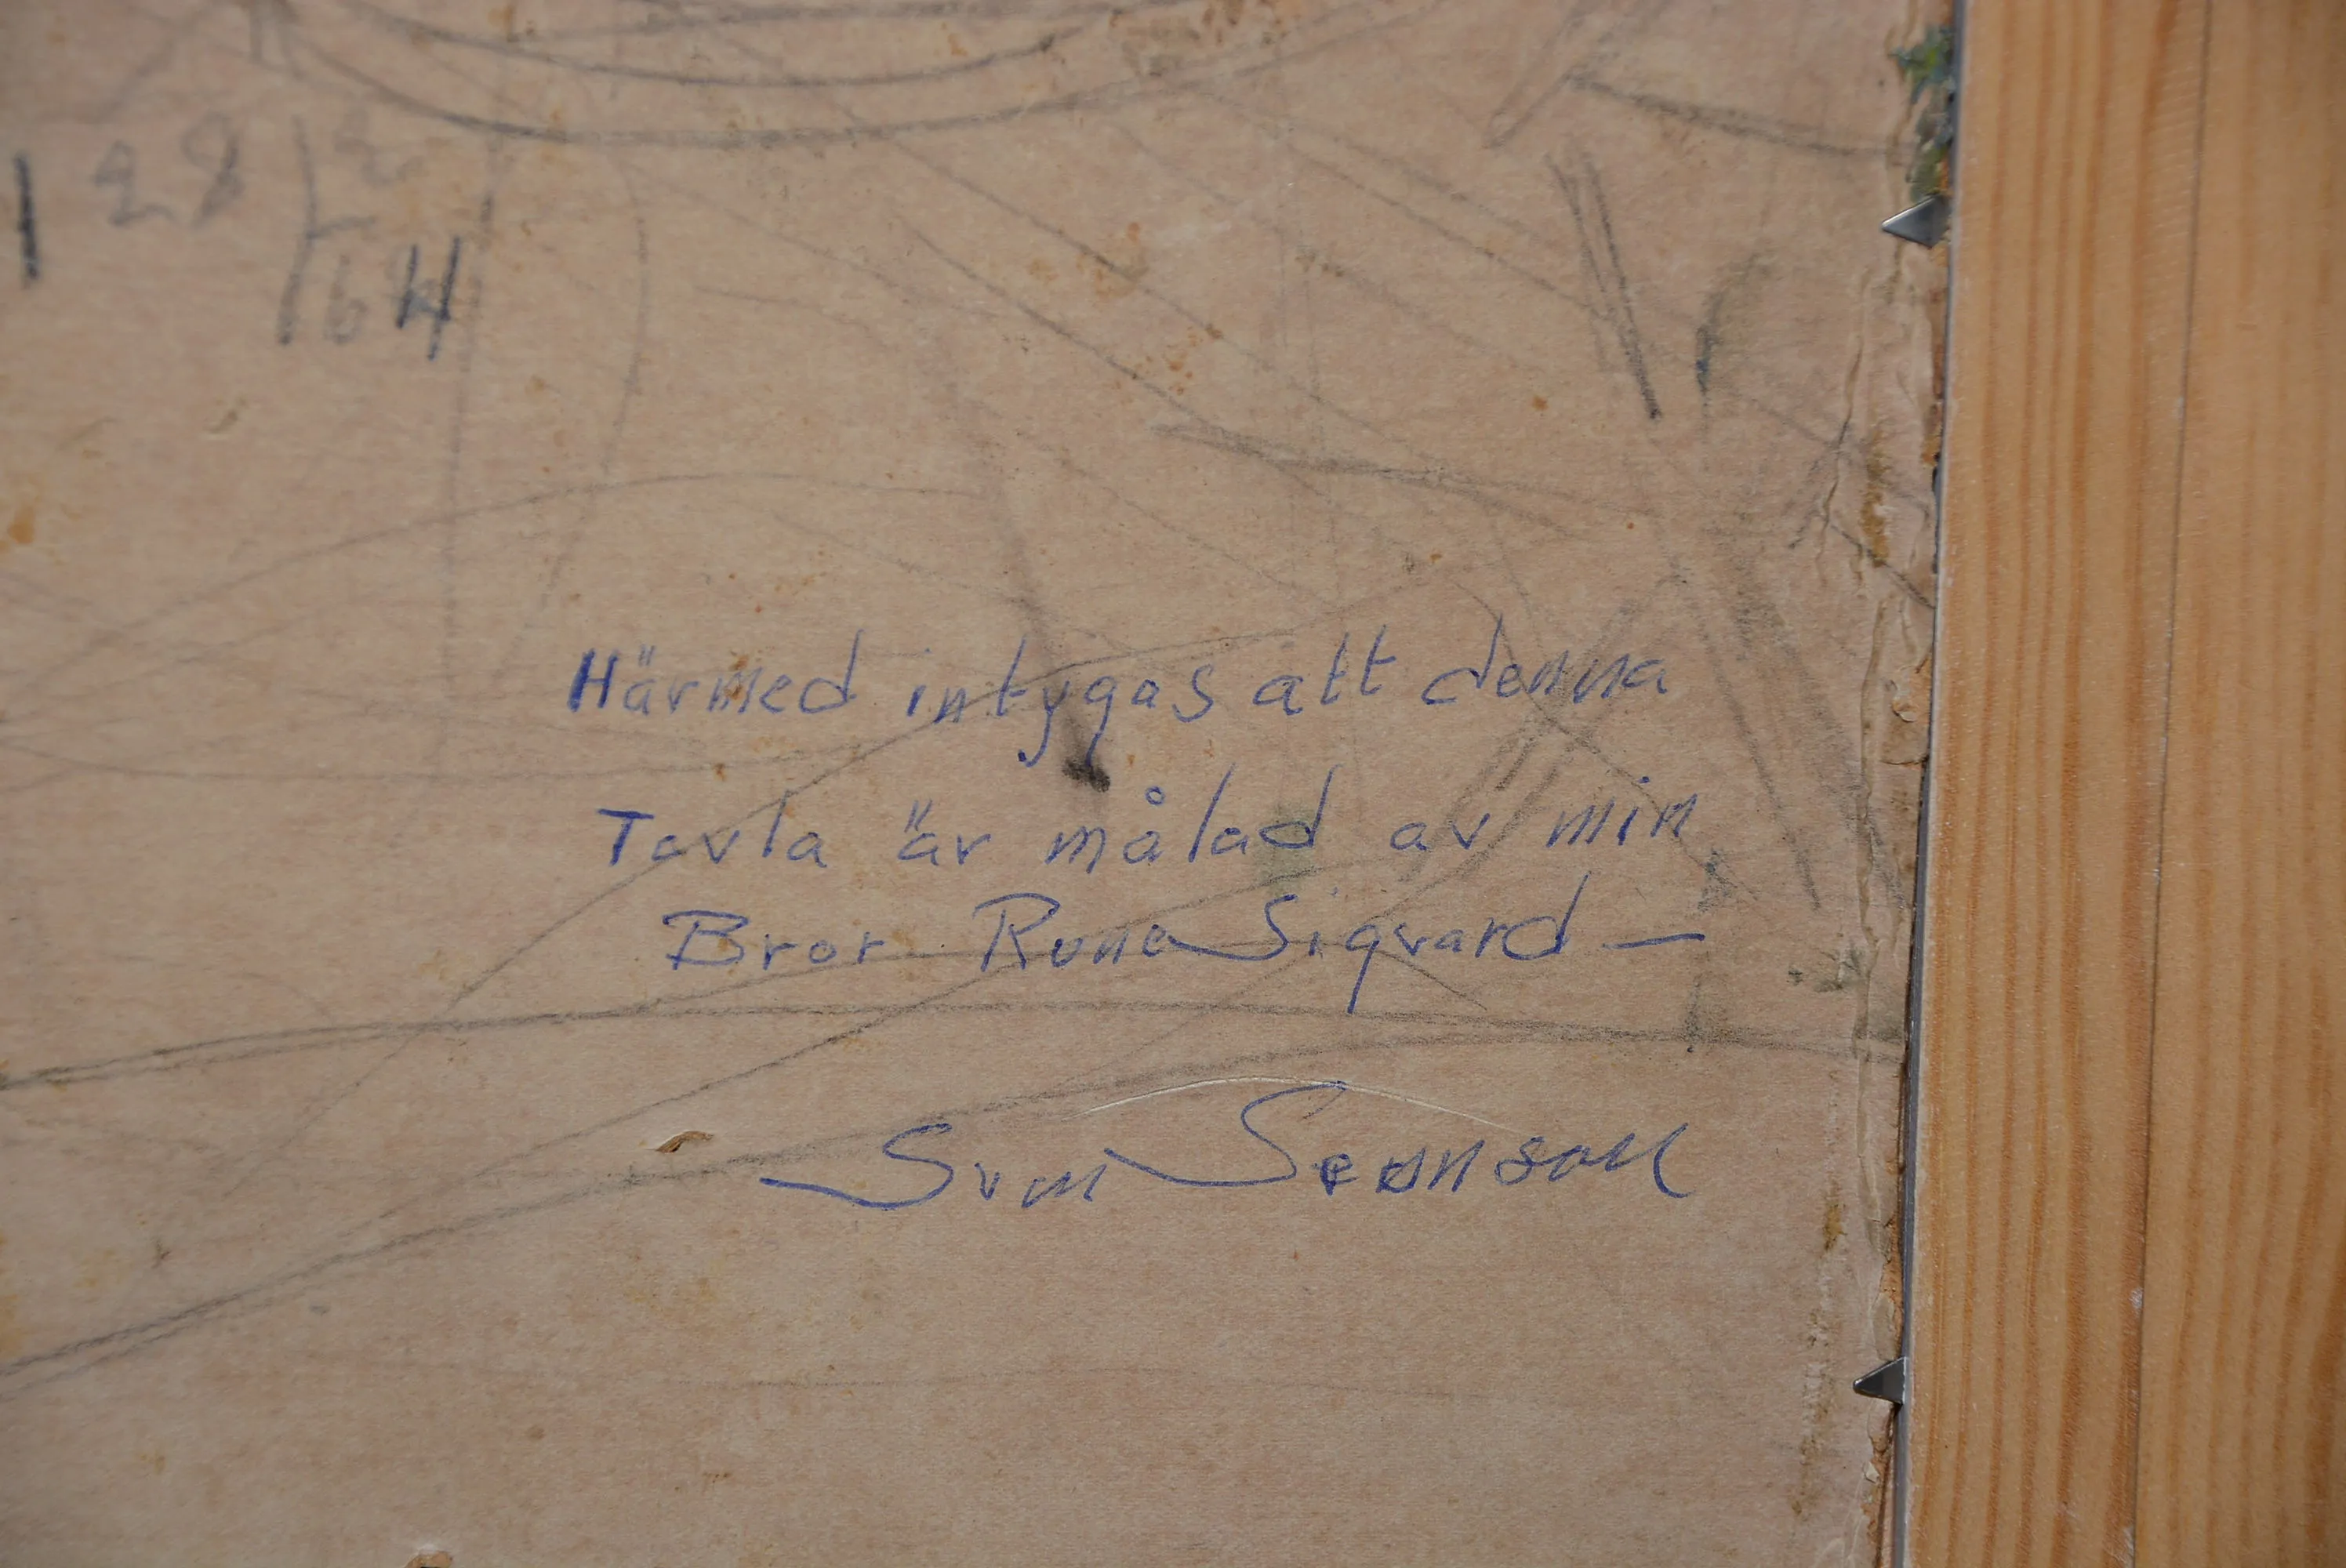 1 28 / 2
64
Härmed intygas att denna
Tavla är målad av min
Bror Rune Sigvard —
Sven